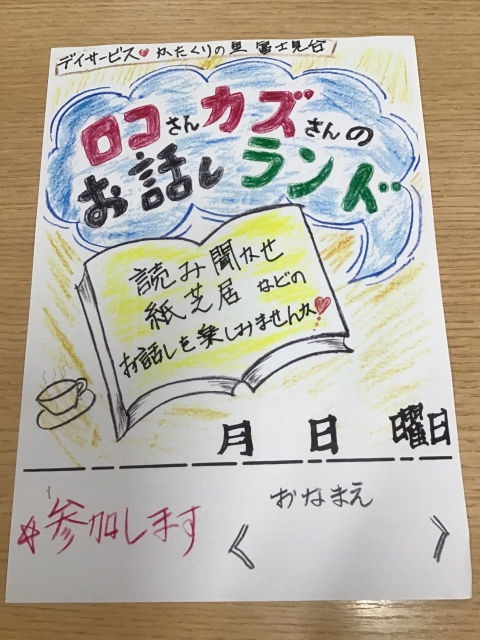 デイサービス♥かたくりの里 富士見台
ロコさんカズさんの
お話しランド
読み聞かせ
紙芝居などの
お話しを楽しみませんか♥
月 日 曜日
☆参加します
おなまえ
〈 〉